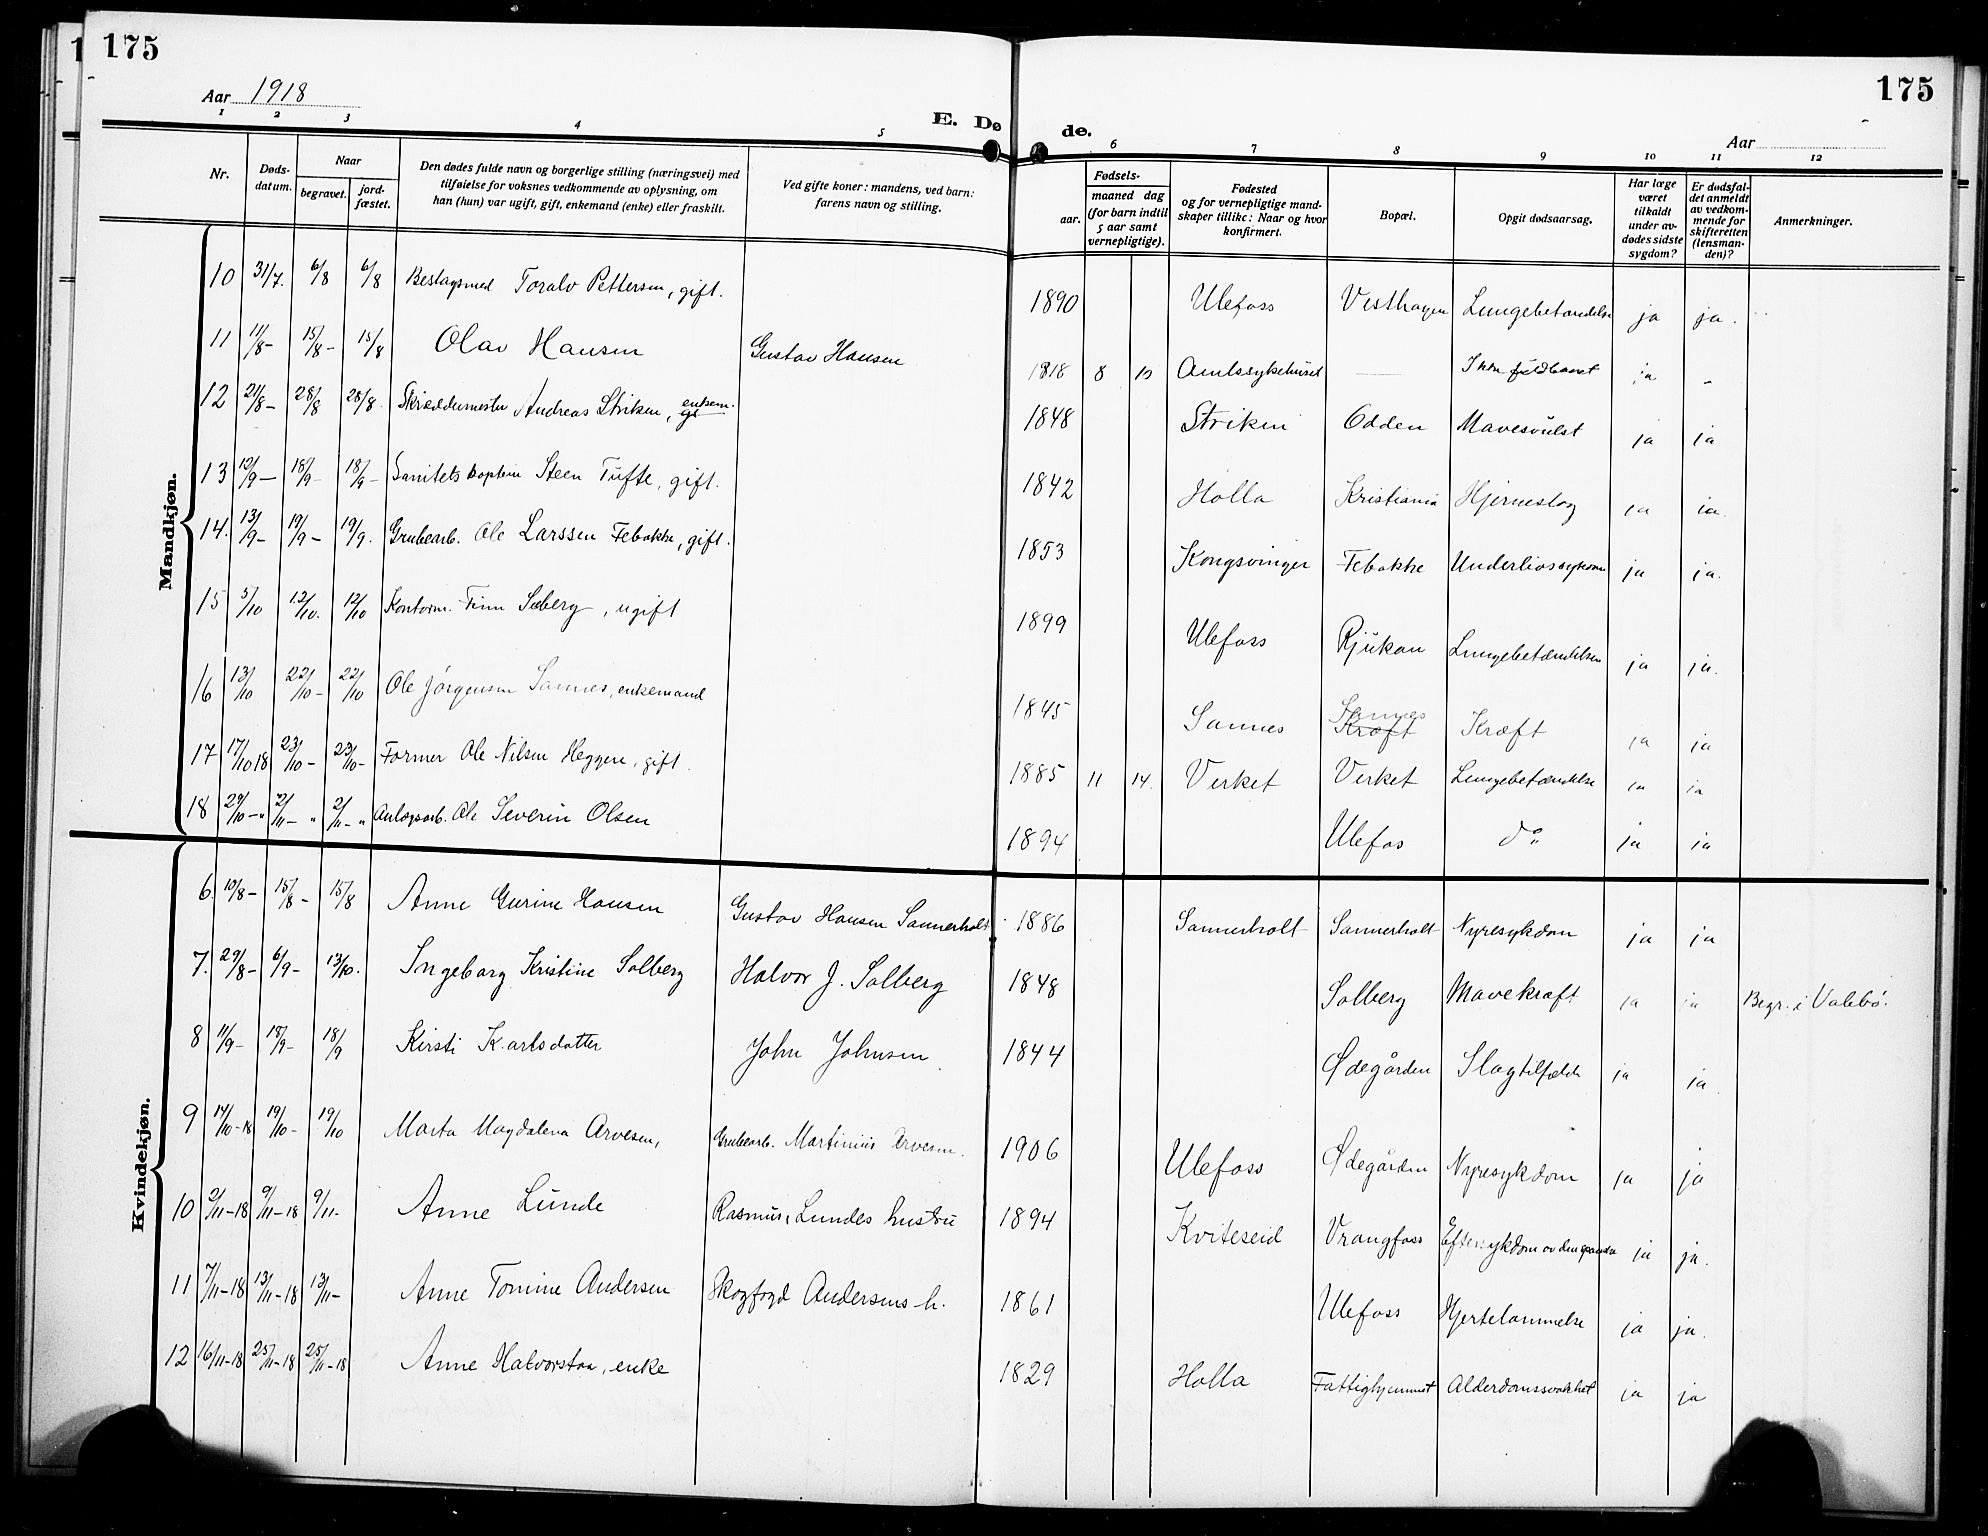 175
175
Aar 1918
E. Dø de.
Aar
1 2 3 4 5 6 7 8 9 10 11 12
Nr.
Dødsdatum.
Naar
begravet.
jordfæstet.
Den dødes fulde navn og borgerlige stilling (næringsvei) med tilføielse for voksnes vedkommende av oplysning, om han (hun) var ugift, gift, enkemand (enke) eller fraskilt.
Ved gifte koner: mandens, ved barn: farens navn og stilling.
Fødsels-
aar.
maaned dag
(for barn indtil 5 aar samt vernepligtige).
Fødested og for vernepligtige mandskaper tillike: Naar og hvor konfirmert.
Bopæl.
Opgit dødsaarsag.
Har læge været tilkaldt under avdødes sidste sygdom?
Er dødsfaldet anmeldt av vedkommende for skifteretten (lensmanden)?
Anmerkninger.
Mandkjøn.
10 31/7. 6/8 6/8 Beslagsmed Toralv Pettersen, gift. 1890 Ulefoss Vesthagen Lungebetændelse ja ja.
11 11/8- 15/8- 15/8 Olav Hansen Gustav Hansen 1818 8 10 Amtssykehuset — Ikke fuldbaaret ja -
12 21/8- 28/8 28/8. Skræddermester Andreas Striken, enkem. 1848 Striken Odden Mavesvulst ja ja
13 12/9- 18/9- 18/9- Sanitetskaptein Steen Tufte, gift. 1842 Holla Kristiania Hjerneslag ja ja.
14. 13/9- 19/9- 19/9. Grubearb. Ole Larssen Febakke, gift. 1853 Kongsvinger Febakke Underlivssykdom ja ja.
15 5/10 12/10. 12/10 Kontorm. Finn Søberg, ugift 1899 Ulefoss Rjukan Lungebetændelsen ja ja.
16 13/10 22/10- 22/10 Ole Jörgensen Sannes, enkemand 1845 Sannes Sannes Kræft Kræft ja ja
17 17/10 18 23/10- 23/10- Former Ole Nilsen Heggen, gift. 1885 11 14. Verket Verket Lungebetændelse ja ja
18 29/10-" 2/11-" 2/11-" Anlægsarb. Ole Severin Olsen 1894 Ulefos do" ja ja
Kvindekjøn.
6. 10/8- 15/8- 15/8 Anne Gurine Hansen Gustav Hansen Sannerholt 1886 Sannerholt Sannerholt Nyresykdom ja ja
7. 29/8- 6/9- 13/10. Ingeborg Kristine Solberg Halvor J. Solberg 1848 Solberg Mavekræft ja ja Begr. i Valebø.
8 11/9- 18/9- 18/9 Kirsti K.arlsdatter John Johnsen 1844 Ødegården Slagtilfælde ja ja
9 14/10-18 19/10- 19/10 Marta Magdalena Arvesen, Grubearb. Martinius Arvesen. 1906 Ulefoss Ødegården Nyresykdom ja ja
10 2/11-18 9/11-18 9/11. Anne Lunde Rasmus Lundes hustru 1894 Kviteseid Vrangfoss Eftersykdom av den spanske ja ja.
11 7/11-18 13/11-18 13/11- Anne Tomine Andersen Skogfogd Andersens h. 1861 Ulefoss Hjertelammelse ja ja.
12 16/11-18 25/11-18 25/11-18 Anne Halvorstaa, enke 1829 Holla Fattighjemmet Alderdomssvakhet ja ja